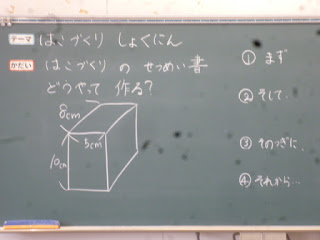 テーマ はこづくり しょくにん
かだい はこづくり の せつめい書
どうやって 作る?
8cm
5cm
10cm
① まず
② そして、
③ そのつぎに
④ それから…